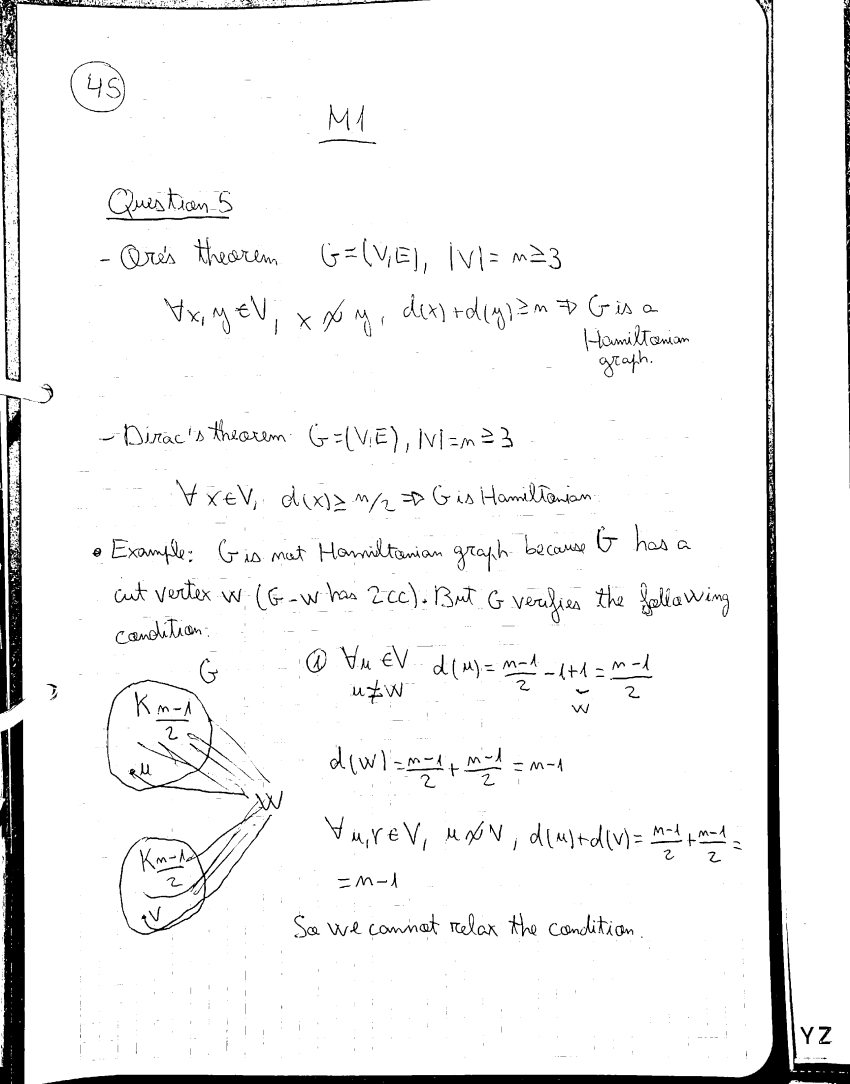 45
M1
Question 5
- Ore's theorem G=(V,E), |V|= n≥3
∀x,y ∈V, x ≁ y, d(x)+d(y)≥n ⇒ G is a
Hamiltonian
graph.
- Dirac's theorem G=(V,E), |V|=n≥3
∀ x∈V, d(x)≥ n/2 ⇒ G is Hamiltonian
• Example: G is not Hamiltonian graph because G has a
cut vertex w (G-w has 2cc). But G verifies the following
condition:
G
① ∀u ∈V d(u)= n-1/2 -1+1 = n-1/2
u≠w
w
K n-1/2
u
d(w)= n-1/2 + n-1/2 = n-1
W
∀u,v∈V, u≁v, d(u)+d(v)= n-1/2 + n-1/2 =
= n-1
K n-1/2
v
So we cannot relax the condition.
YZ